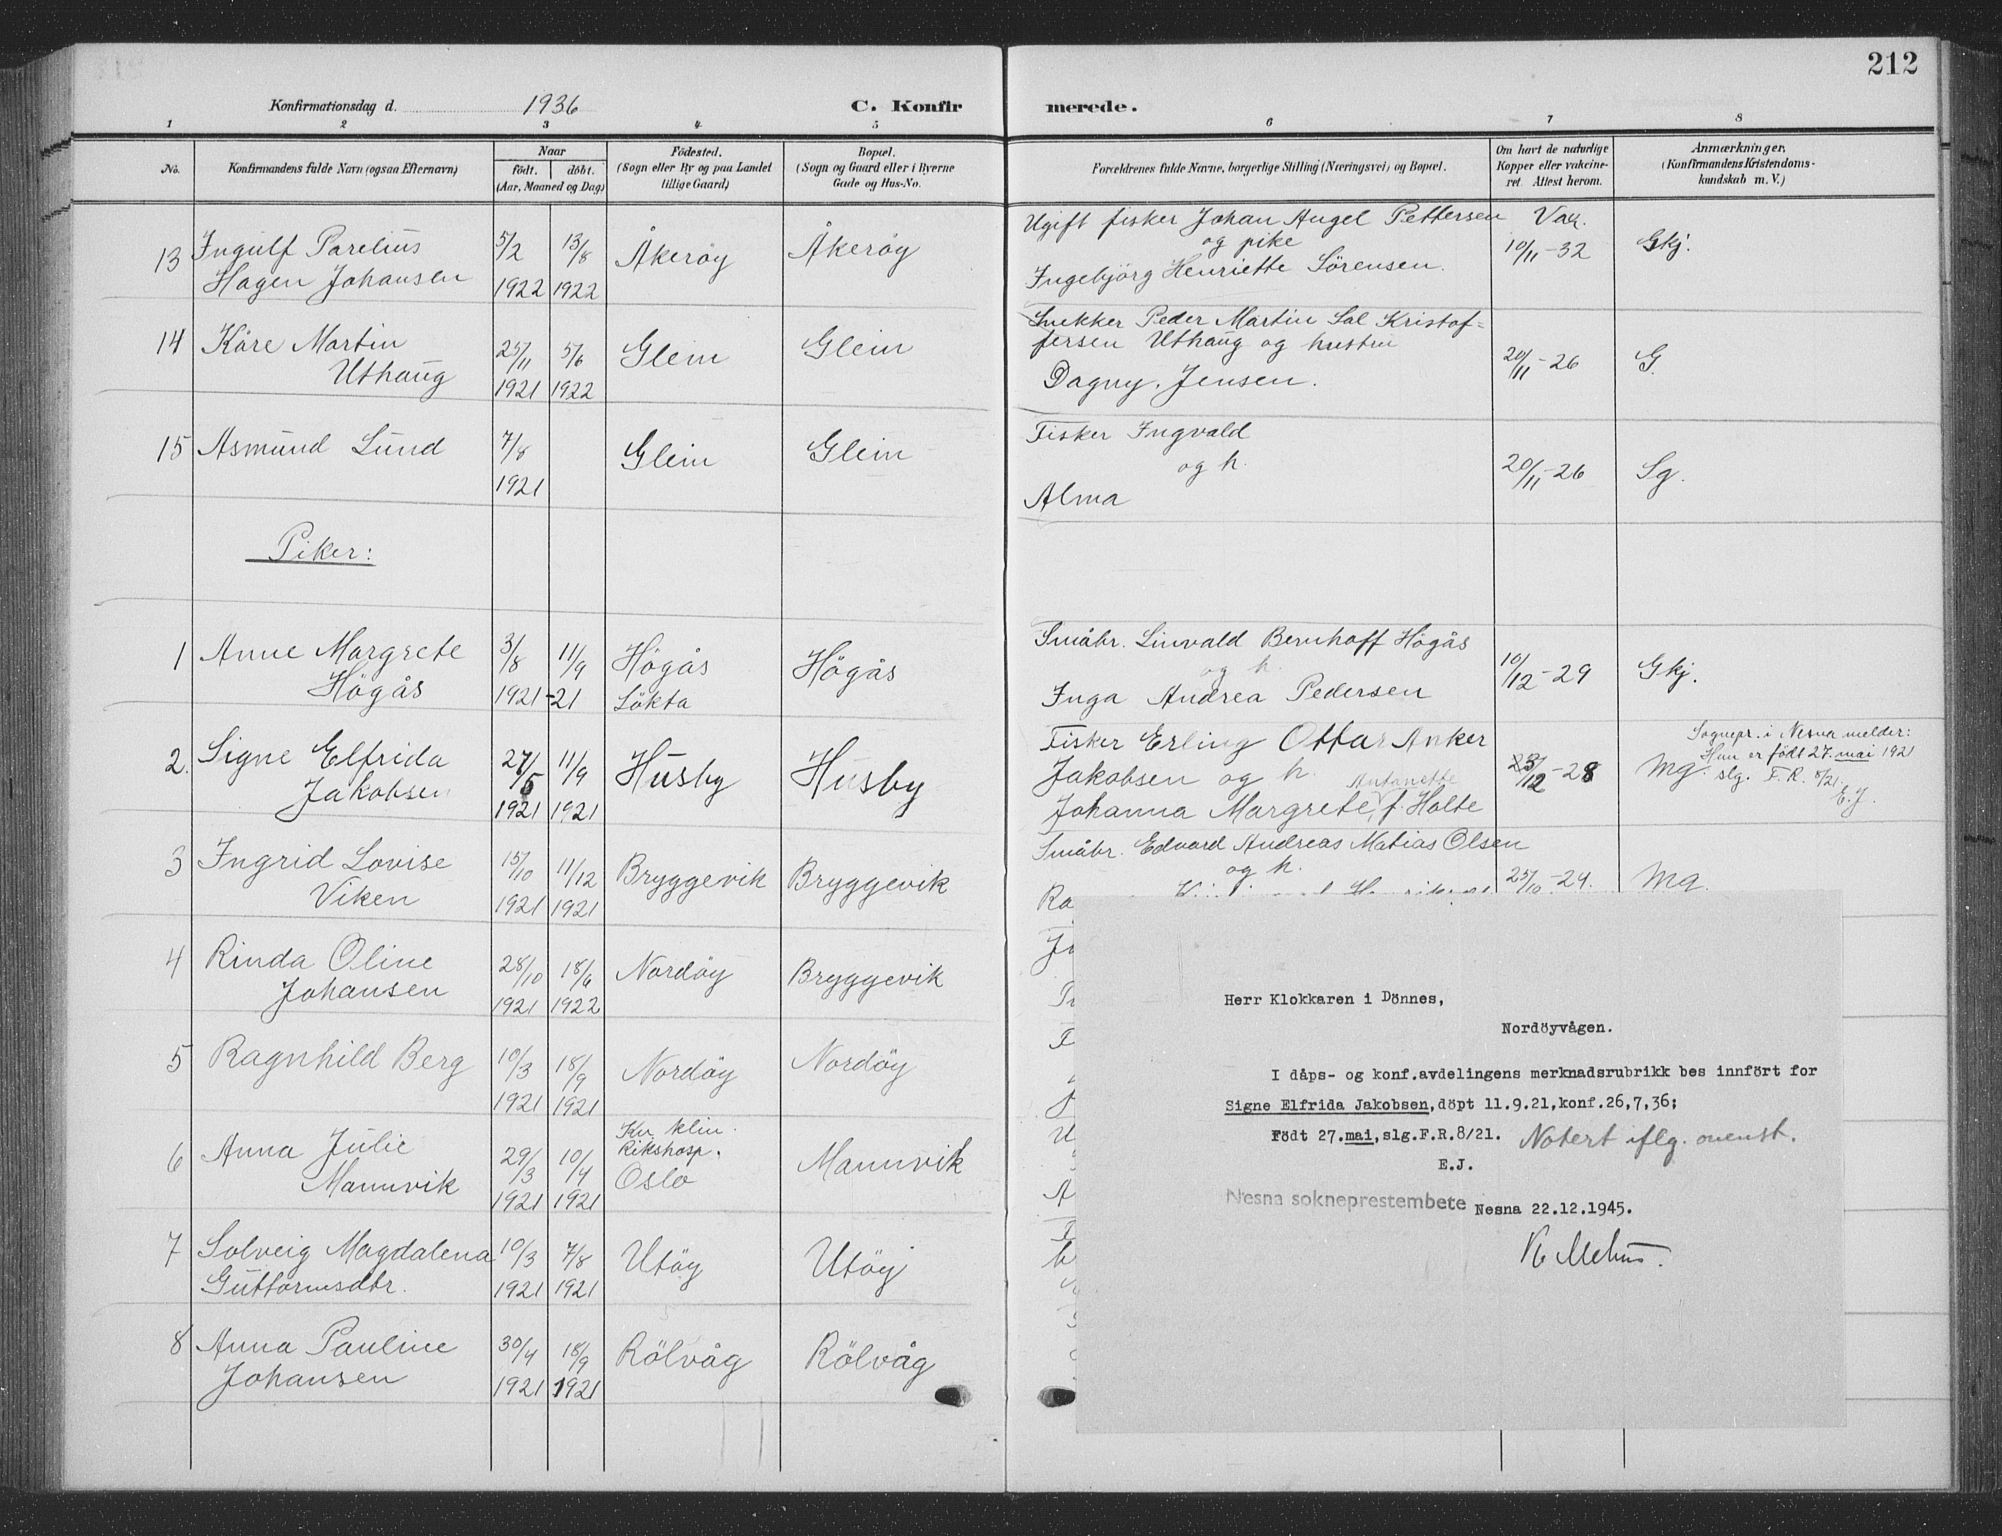 212
Konfirmationsdag d. 1936
C. Konfirmerede.
1 2 3 4 5 6 7 8
No. Konfirmandens fulde Navn (ogsaa Efternavn)
Naar
födt. döbt.
(Aar, Maaned og Dag)
Födested.
(Sogn eller By og paa Landet
tillige Gaard)
Bopæl.
(Sogn og Gaard eller i Byerne
Gade og Hus-No.
Forældrenes fulde Navne, borgerlige Stilling (Næringsvei) og Bopæl.
Om havt de naturlige
Kopper eller vakcine-
ret. Attest herom.
Anmærkninger,
(Konfirmandens Kristendoms-
kundskab m. V.)
13 Ingulf Parelius
Hagen Johansen
5/2 1922
13/8 1922
Åkeröy
Åkeröy
Ugift fisker Johan Angel Pettersen
og pike
Ingebjörg Henriette Sörensen.
Vax.
10/11-32
Gkj.
14 Kåre Martin
Uthaug
25/11 1921
5/6 1922
Glein
Glein
Snekker Peder Martin Sal Kristof=
fersen Uthaug og hustru
Dagny Jensen.
20/11-26
G.
15 Asmund Lund
7/8 1921
Glein
Glein
Fisker Ingvald
og h.
Alma
20/11-26
Sg.
Piker:
1 Anne Margrete
Högås
3/8 1921
11/9 -21
Högås
Lökta
Högås
Småbr. Linvald Bernhoff Högås
og h.
Inga Andrea Pedersen
10/12-29
Gkj.
2. Signe Elfrida
Jakobsen
27/5 1921
11/9 1921
Husby
Husby
Fisker Erling Ottar Anker
Jakobsen og h. Antonette
Johanna Margrete, f. Holte
23/12-28
Mg.
Sognepr. i Nesna melder:
Hun er födt 27. mai 1921
slg. F.R. 8/21.
E.J.
3 Ingrid Lovise
Viken
15/10 1921
11/12 1921
Bryggevik
Bryggevik
Småbr. Edvard Andreas Matias Olsen
og h.
25/10-29.
Mg.
4 Rinda Oline
Johansen
28/10 1921
18/6 1922
Nordöy
Bryggevik
5 Ragnhild Berg
10/3 1921
18/9 1921
Nordöy
Nordöy
6 Anna Julie
Mannvik
29/3 1921
10/4 1921
Kv. klin.
Rikshosp.
Oslo
Mannvik
7 Solveig Magdalena
Guttormsdtr.
10/3 1921
7/8 1921
Utöy
Utöy
8 Anna Pauline
Johansen
30/4 1921
18/9 1921
Rölvåg
Rölvåg
Herr Klokkaren i Dönnes,
Nordöyvågen.
I dåps- og konf.avdelingens merknadsrubrikk bes innfört for
Signe Elfrida Jakobsen, döpt 11.9.21, konf.26,7,36;
Födt 27.mai, slg.F.R.8/21. Notert iflg. ovenst.
E.J.
Nesna sokneprestembete Nesna 22.12.1945.